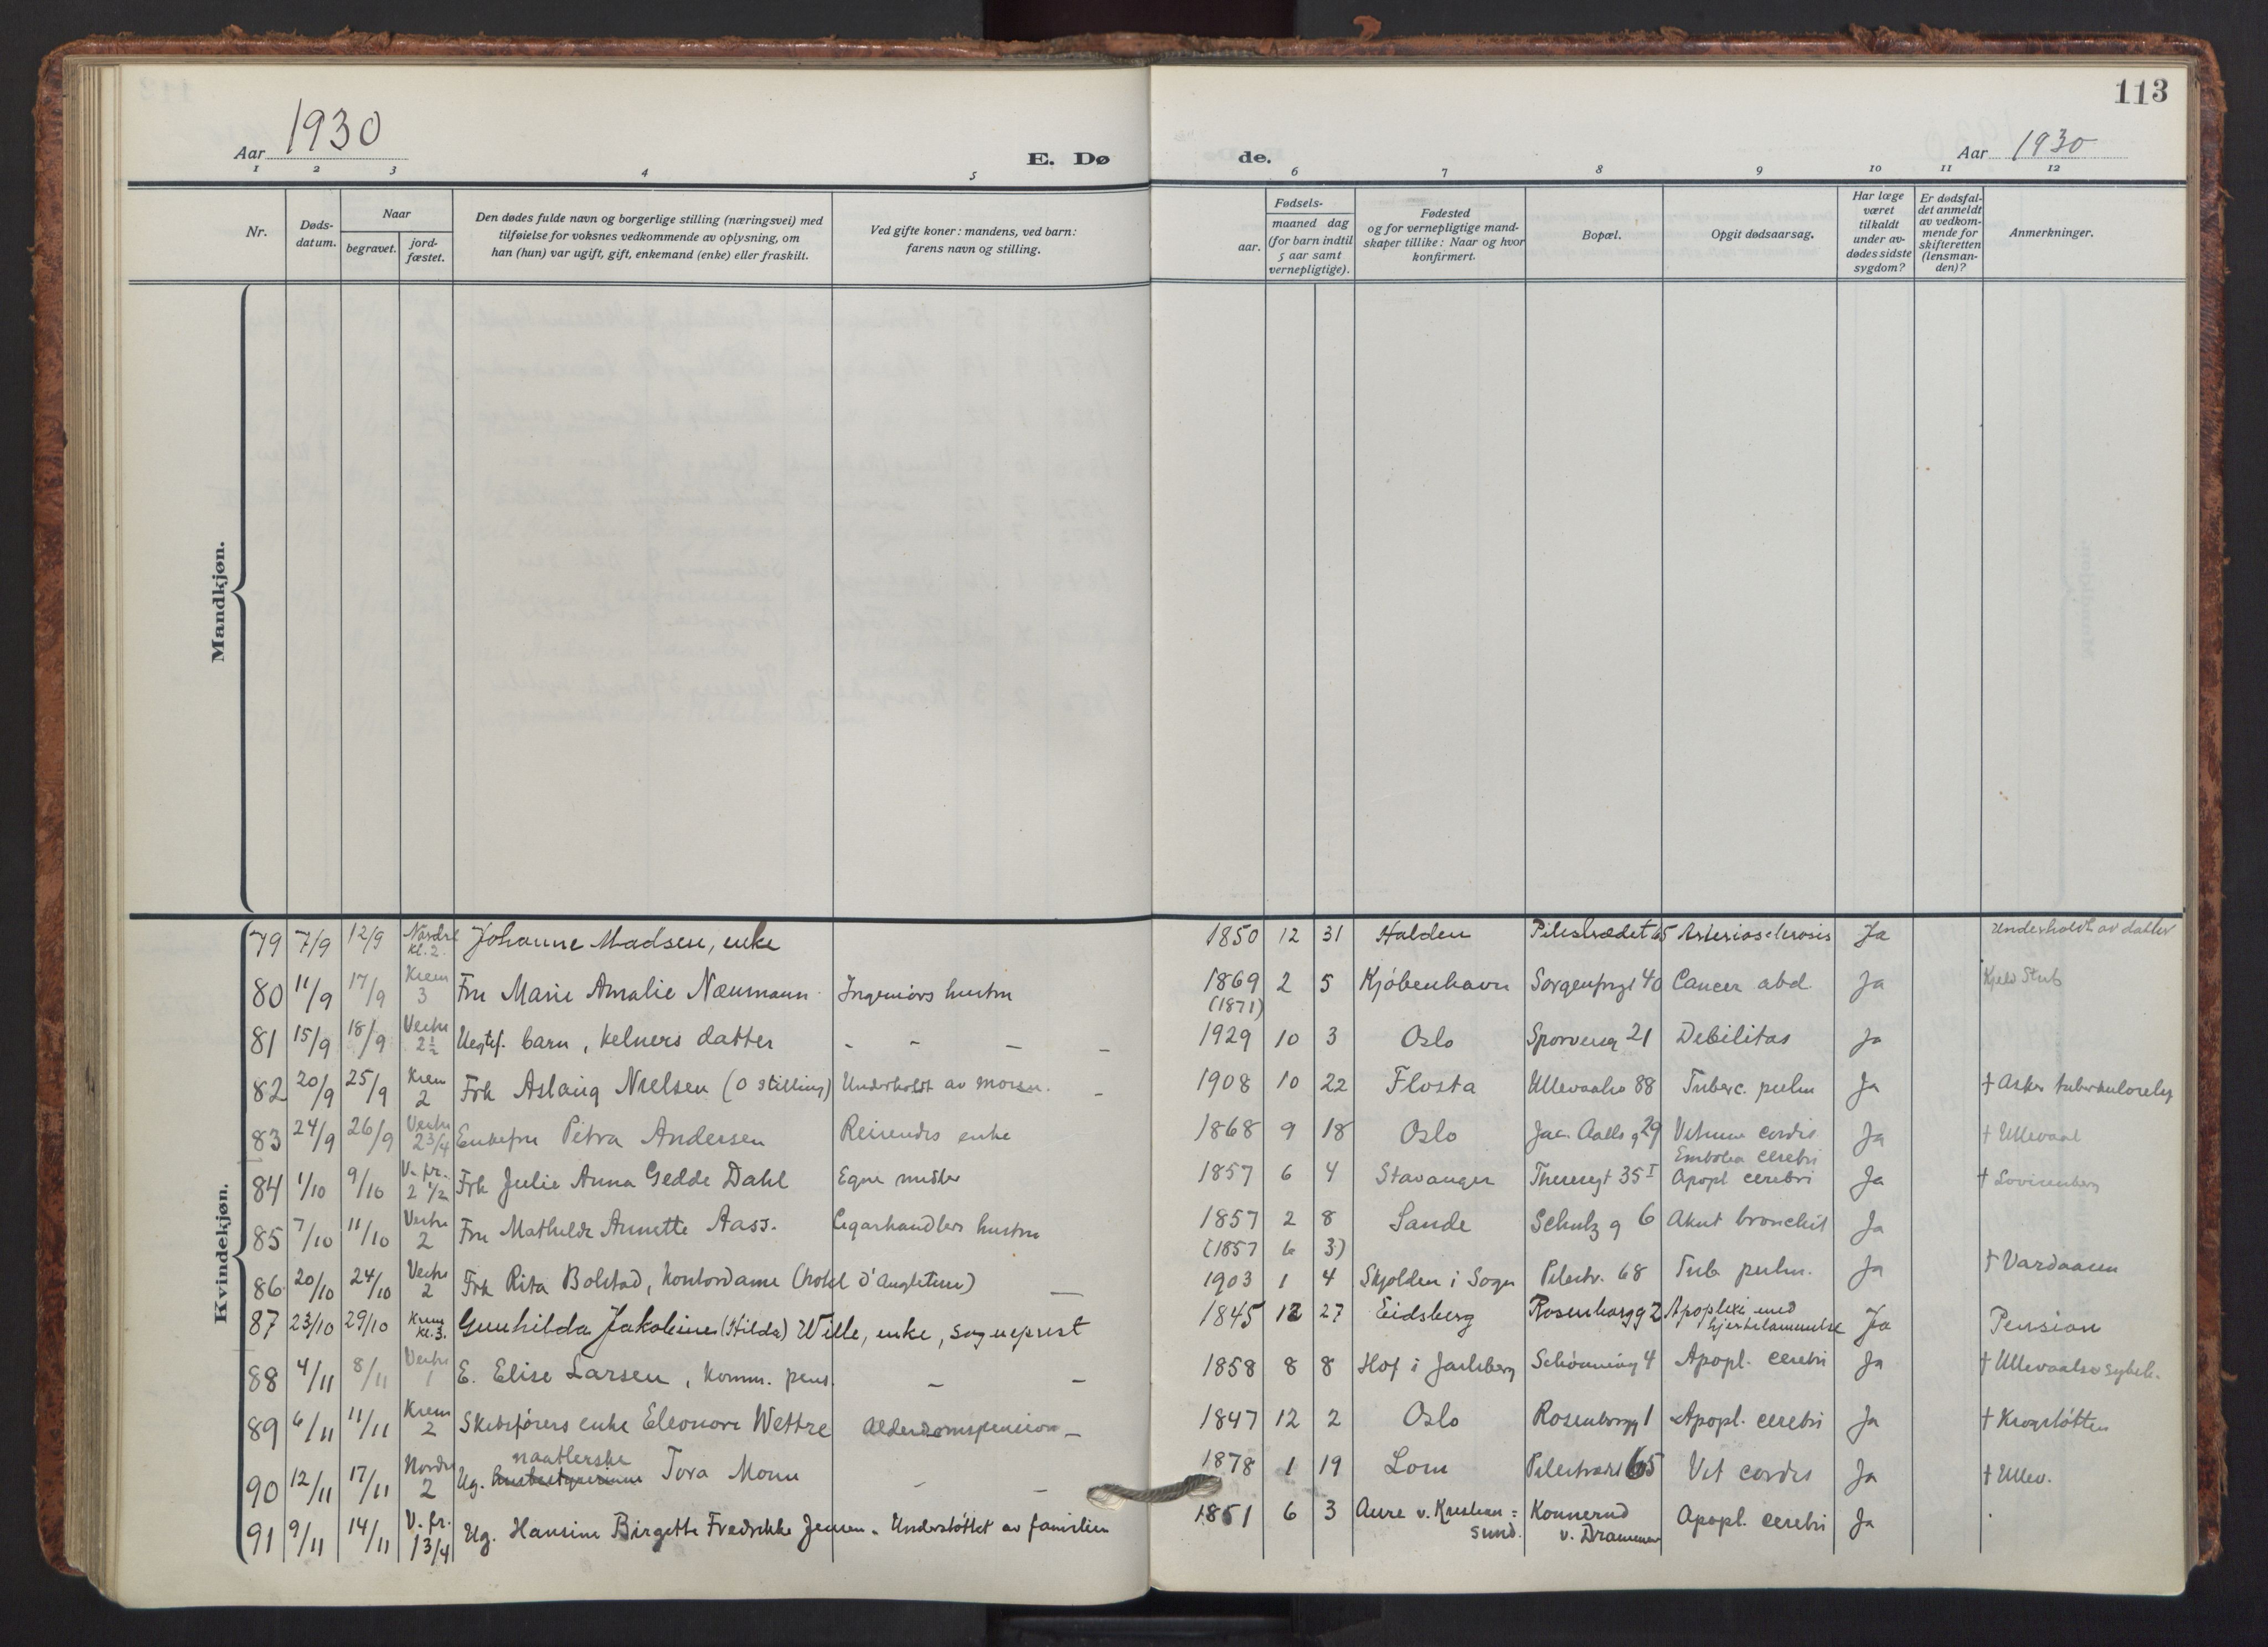 113
Aar 1930
E. Dø
de.
Aar 1930
1 2 3 4 5 6 7 8 9 10 11 12
Nr.
Døds-
datum.
Naar
begravet.
jord-
fæstet.
Den dødes fulde navn og borgerlige stilling (næringsvei) med
tilføielse for voksnes vedkommende av oplysning, om
han (hun) var ugift, gift, enkemand (enke) eller fraskilt.
Ved gifte koner: mandens, ved barn:
farens navn og stilling.
aar.
Fødsels-
maaned dag
(for barn indtil
5 aar samt
vernepligtige).
Fødested
og for vernepligtige mand-
skaper tillike: Naar og hvor
konfirmert.
Bopæl.
Opgit dødsaarsag.
Har læge
været
tilkaldt
under av-
dødes sidste
sygdom?
Er dødsfal-
det anmeldt
av vedkom-
mende for
skifteretten
(lensman-
den)?
Anmerkninger.
Mandkjøn.
Kvindekjøn.
79 7/9 12/9 Nordre kl. 2. Johanne Madsen, enke 1850 12 31 Halden Pilestrædet 65 Arteriosclerosis Ja Underholdt av datter
80 11/9 17/9 Krem 3 Fru Marie Amalie Næumann Ingeniørs hustru 1869 (1871) 2 5 Kjøbenhavn Sorgenfrigt 40 Cancer abd. Ja Kjeld Stub
81 15/9 18/9 Vestre 2½ Uegtef. barn, kelners datter - - - - 1929 10 3 Oslo Sporveisg 21 Debilitas Ja
82 20/9 25/9 Krem 2 Frk Aslaug Nielsen (0 stilling) Underholdt av moren. - 1908 10 22 Flosta Ullevaalsv 88 Tuberc. pulm Ja † Asker tuberkulosehj
83 24/9 26/9 Vestre 2 3/4 Enkefru Petra Andersen Reisendes enke 1868 9 18 Oslo Jac. Aalls g 29 Vitium cordis Embolia cerebri Ja † Ullevaal
84 1/10 9/10 V. fr. 2 1/2 Frk Julie Anna Gedde Dahl Egne midler 1857 6 4 Stavanger Theresegt 35 I Apopl cerebri Ja † Lovisenberg
85 7/10 11/10 Vestre 2 Fru Mathilde Annette Aass. Cigarhandlers hustru 1857 2 8 (1857 6 3) Sande Schulz g 6 Akut bronchit Ja
86. 20/10 24/10 Vestre 2 Frk Rita Bolstad, kontordame (hotel d'Angleterre) — 1903 1 4 Skjolden i Sogn Pilestr. 68 Tub. pulm. Ja † Vardaasen
87 23/10 29/10 Krem kl. 3. Gunhilda Jakobine (Hilda) Wille, enke, sogneprest 1845 12 27 Eidsberg Rosenborgg 2 Apoplexi med hjertelammelse Ja Pension
88 4/11 8/11 Vestre 1 E. Elise Larsen, komm. pens. - - 1858 8 8 Hof i Jarlsberg Schønning 4 Apopl. cerebri Ja † Ullevaalsv sykeh.
89 6/11 11/11 Krem 2 Skibsførers enke Eleonore Wettre Alderdomspension - 1847 12 2 Oslo Rosenborgg 1 Apopl. cerebri Ja † Krogstøtten
90 12/11 17/11 Nordre 2 Ug. naatlerske Tora Moun - - 1878 1 19 Lom Pilestrædet 65 Vit cordis Ja † Ullev.
91 9/11 14/11 V. fr. 1 3/4 Ug. Hansine Birgette Fredrikke Jensen. Understøttet av familien 1851 6 3 Aure v. Kristian= sund. Konnerud v. Drammen Apopl. cerebri Ja